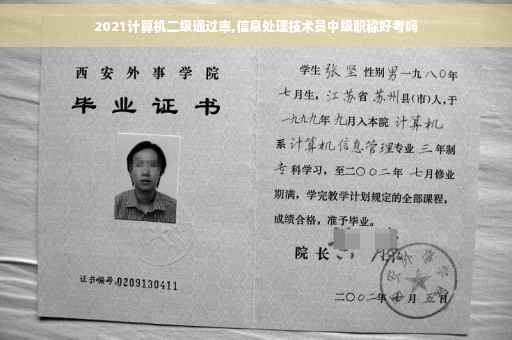 2021计算机二级通过率,信息处理技术员中级职称好考吗
西安外事学院
毕业证书
证书编号:0209130411
学生 张坚 性别 男 一九八〇年
七月生，江苏省苏州县(市)人,于
一九九九年九月入本院 计算机
系 计算机信息管理专业 三 年制
专科学习，至二〇〇二年 七月修业
期满，学完教学计划规定的全部课程，
成绩合格，准予毕业。
院长
二〇〇二年 月五日